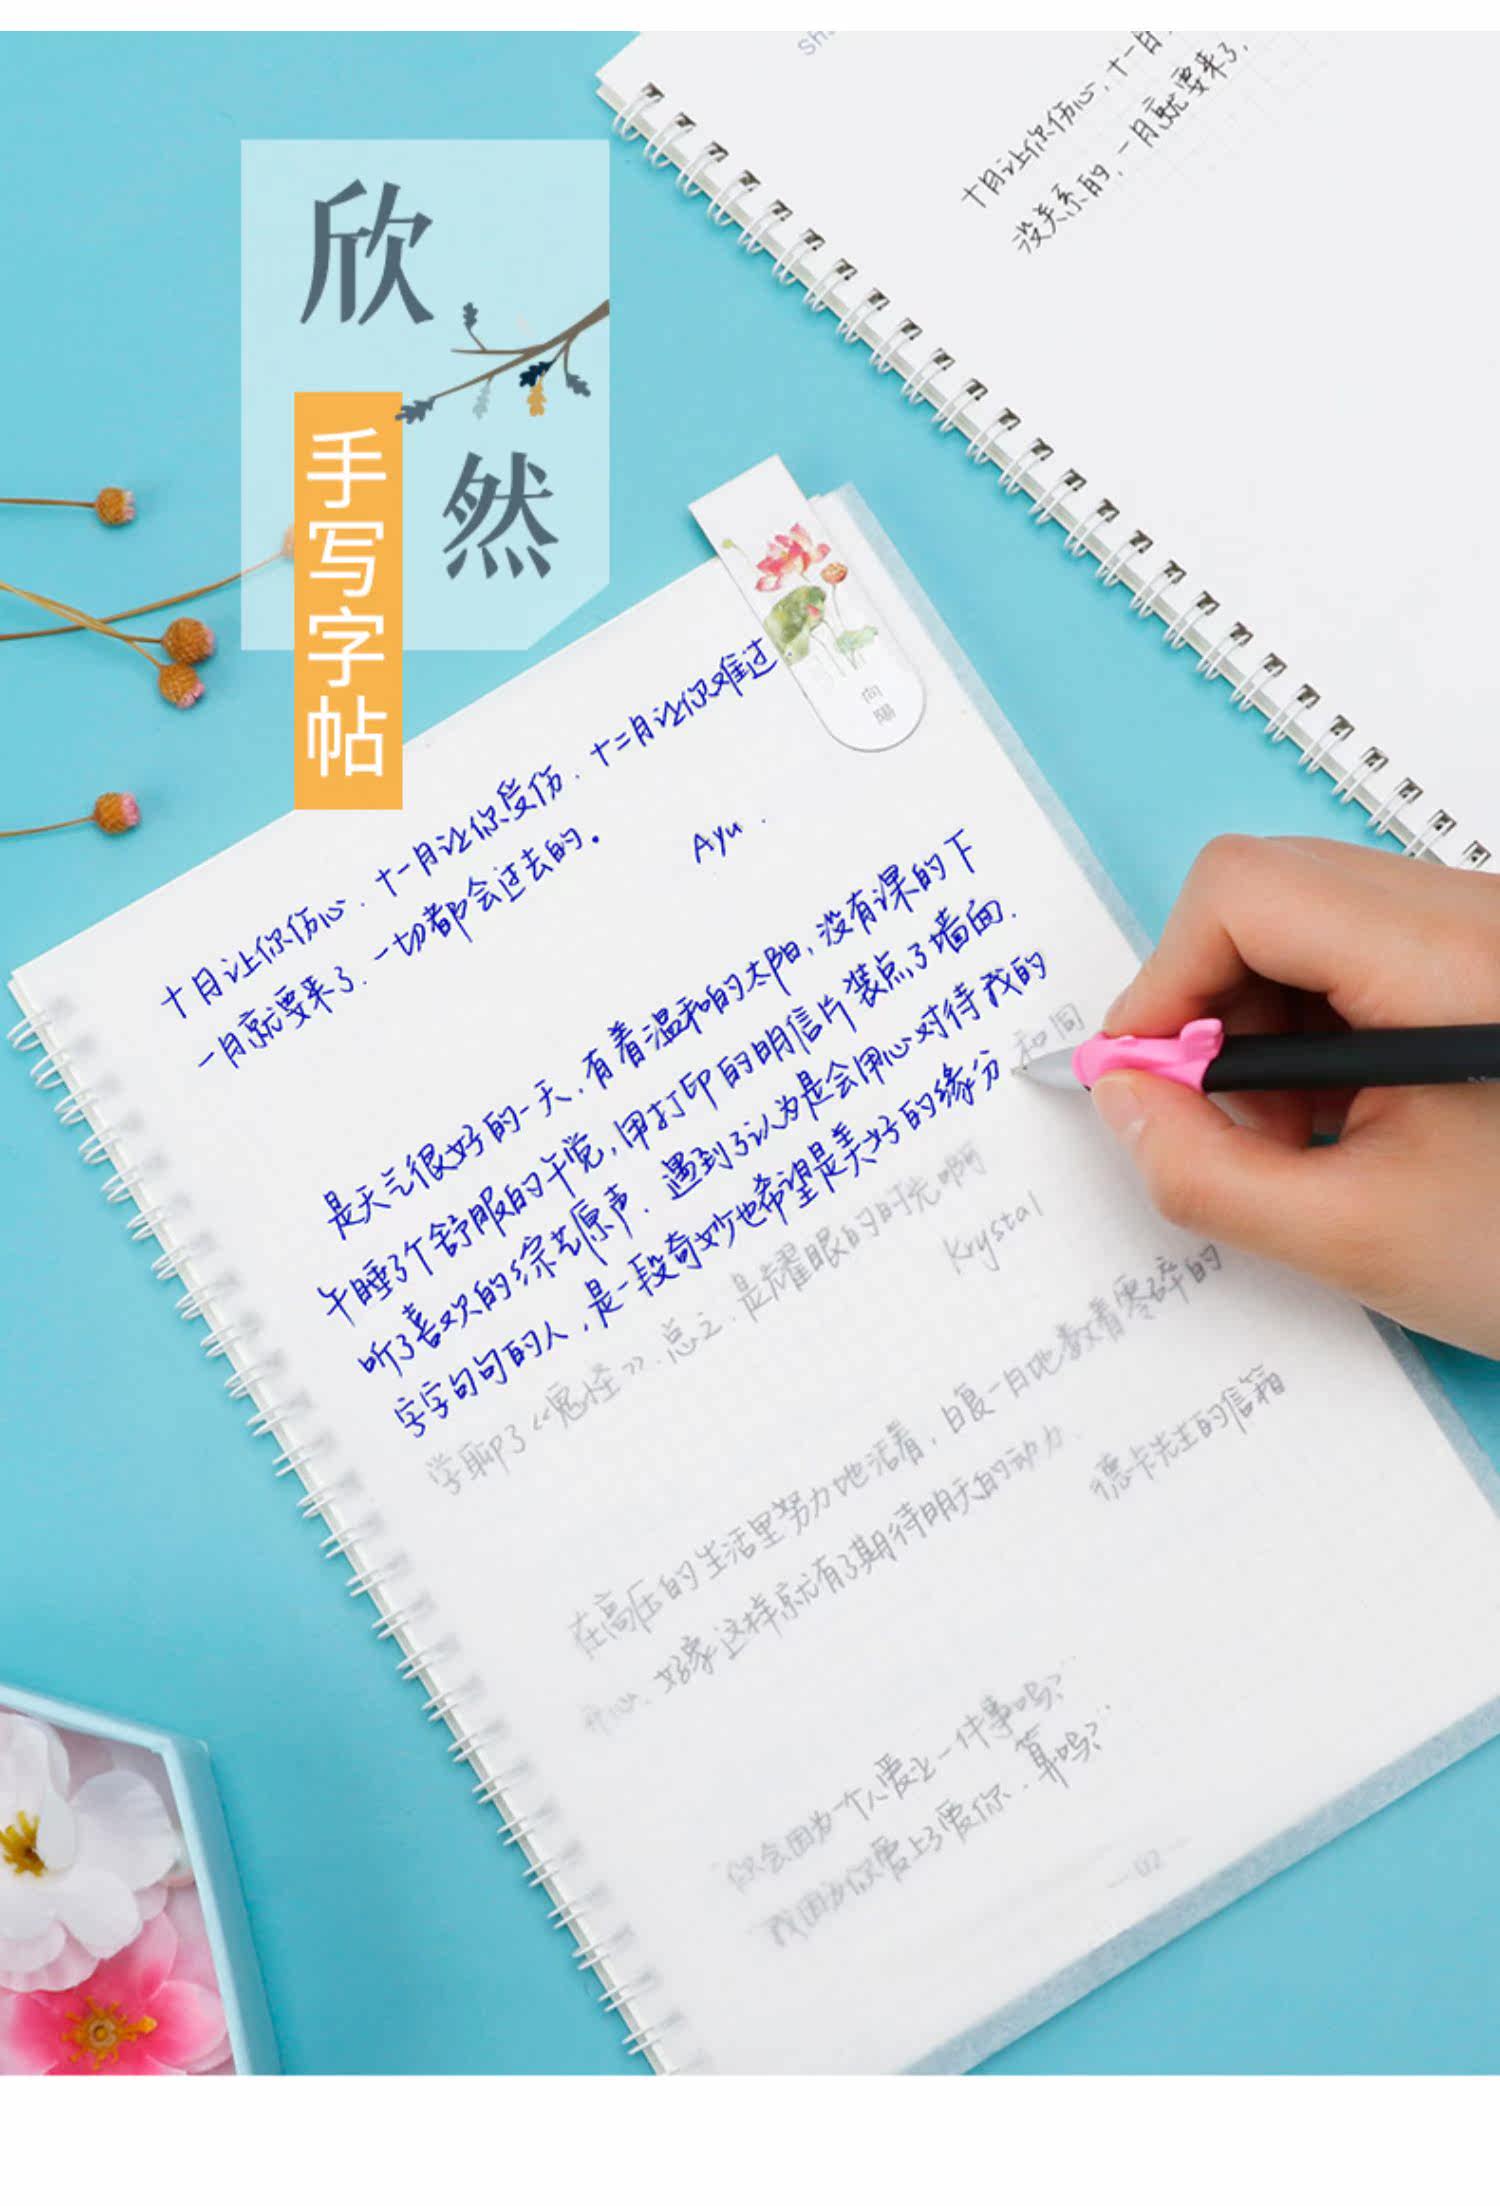 欣然
手写字帖
十月让你伤心,十一月
没关系的,一月就要来了,
向陽
十月让你伤心、十一月让你受伤、十二月让你难过
一月就要来了、一切都会过去的。
Ayu.
是天气很好的一天,有着温和的太阳,没有课的下
午睡了个舒服的午觉,用打印的明信片装点了墙面.
听了喜欢的综艺原声、遇到了认为是会用心对待我的
字字句句的人,是一段奇妙也希望是美好的缘分 和同
学聊了《鬼怪》、总之,是耀眼的时光啊
Krystal
在高压的生活里努力地活着,日复一日地数着零碎的
开心、好像这样就有了期待明天的动力、
德卡先生的信箱
你会因为一个人爱上一件事吗?
我因为你爱上了爱你、算吗?
02